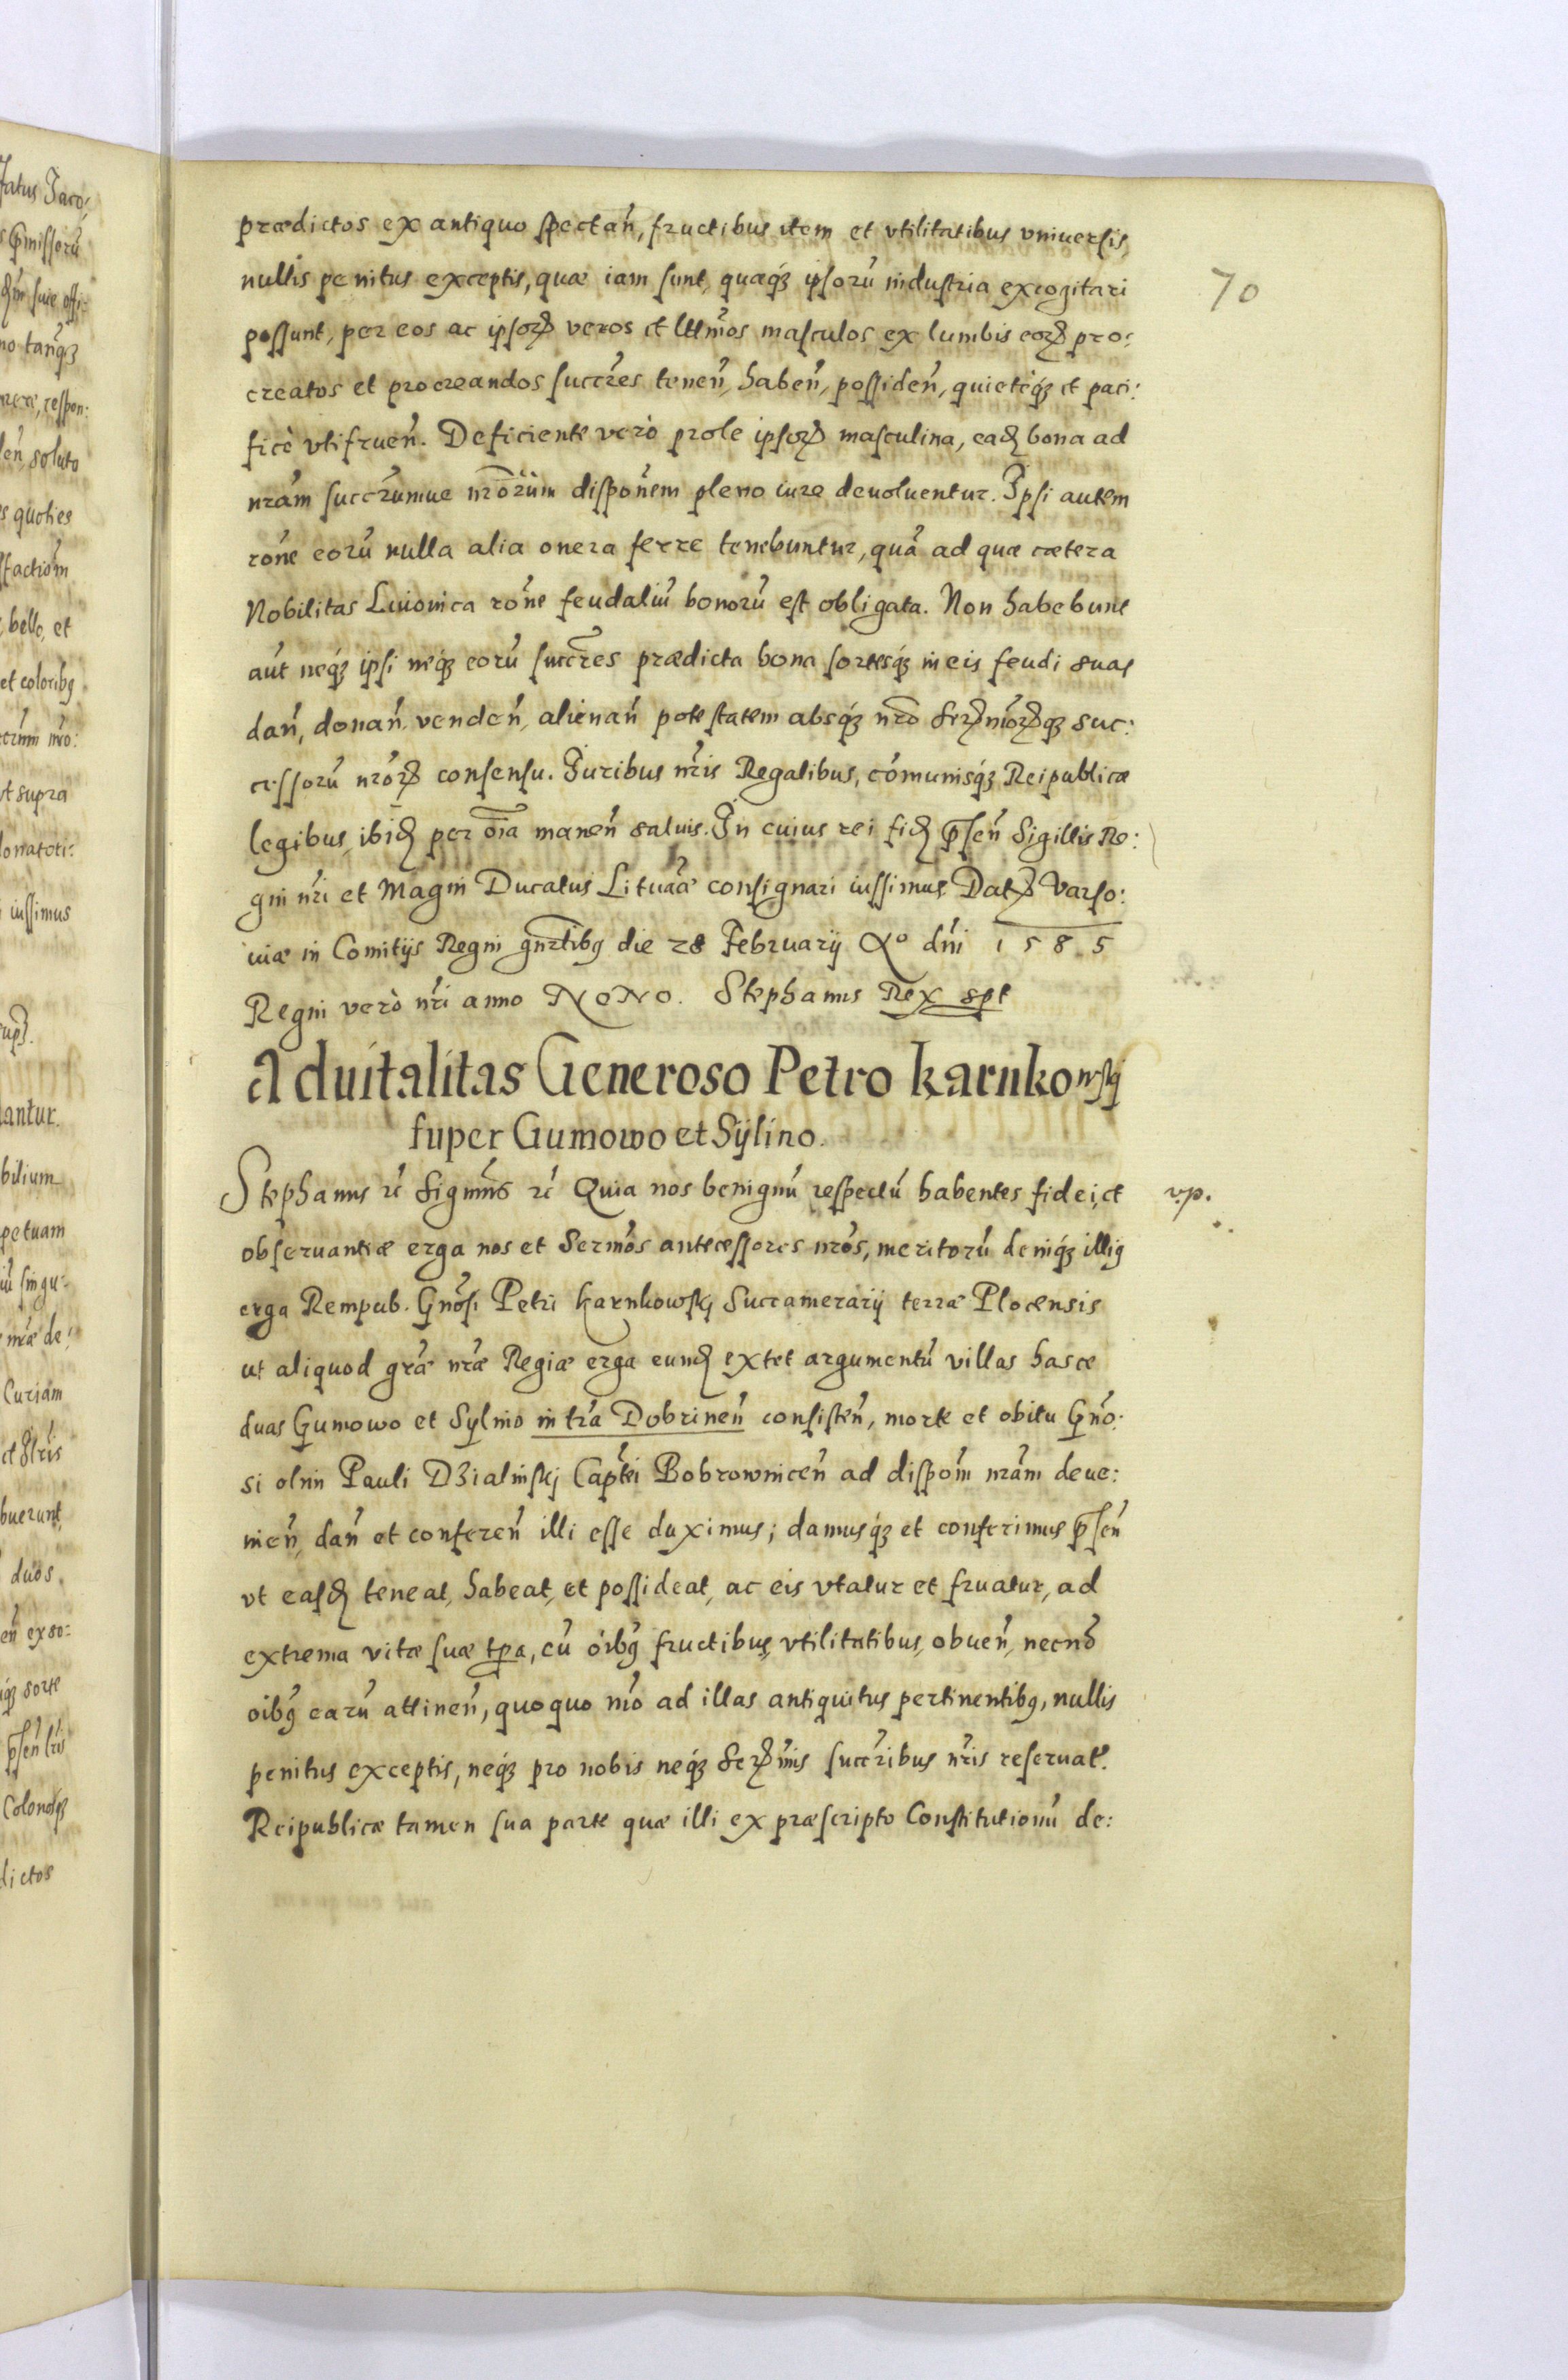 70
prædictos ex antiquo spectań, fructibus item et vtilitatibus vniuersis,
nullis penitus exceptis, quæ iam sunt, quæq́ꝫ ipsorũ industria excogitari
possunt, per eos ac ipsorꝝ veros et lttm̃os masculos ex lumbis eorꝝ pro:
creatos et procreandos succr̃es teneñ, habeñ, possideñ, quietèq́ꝫ et paci:
ficè vtifrueñ. Deficiente verò prole ipsorꝝ masculina, eadꝫ bona ad
nr̃am succr̃umue nr̃orum disponẽm pleno iure deuoluentur. Ipsi autem
rõne eorũ nulla alia onera ferre tenebuntur, quã ad quæ cætera
Nobilitas Liuonica rõne feudaliũ bonorũ est obligata. Non habebunt
aũt neq́ꝫ ipsi neq́ꝫ eorũ succr̃es prædicta bona sortesq́ꝫ in eis feudi suas
dañ, donañ, vendeñ, alienañ potestatem absq́ꝫ nr̃o Serꝝmorꝝqꝫ suc:
cessorũ nr̃orꝝ consensu. Iuribus nr̃is Regalibus, cõmunisq́ꝫ Reipublicæ
legibus, ibidꝫ per oĩa maneñ saluis. In cuius rei fidꝫ p̃señ Sigillis Re:
gni nr̃i et Magni Ducatus Lituãæ consignari iussimus. Datꝝ Varso:
uiæ in Comitijs Regni gñrlibꝫ die 28 Februarij Aº dñi 1585
Regni verò nr̃i anno NONO. Stephanus Rex spt
Aduitalitas Generoso Petro Karnkowskj
super Gumowo et Sÿlino.
Stephanus rc̃ Signm̃s rc̃ Quia nos benignũ respectũ habentes fidei, et
vp.
obseruantiæ erga nos et Sermõs antecessores nr̃os, meritorũ deniq́ꝫ illiꝰ
erga Rempub. Gnõsi Petri Karnkowskj Succamerarij terræ Plocensis
ut aliquod gr̃æ nr̃æ Regiæ erga eundꝫ extet argumentũ villas hasce
duas Gumowo et Sylino in tr̃a Dobrineñ consisteñ, morte et obitu Gnõ:
si olim Pauli Dzialinskj Capt̃ei Bobrowniceñ ad dispoñm nr̃am deue:
nieñ, dañ et confereñ illi esse duximus; damusq́ꝫ et conferimus p̃señ
vt easdꝫ teneat, habeat, et possideat, ac eis vtatur et fruatur, ad
extrema vitæ suæ tp̃a, cũ oĩbꝫ fructibus, vtilitatibus, obueñ, necnõ
oĩbꝫ earũ attineñ, quoquo mõ ad illas antiquitus pertinentibꝫ, nullis
penitus exceptis, neq́ꝫ pro nobis neq́ꝫ Serꝝmis succr̃ibus nr̃is reseruat̃.
Reipublicæ tamen sua parte quæ illi ex præscripto Constitutionũ de: